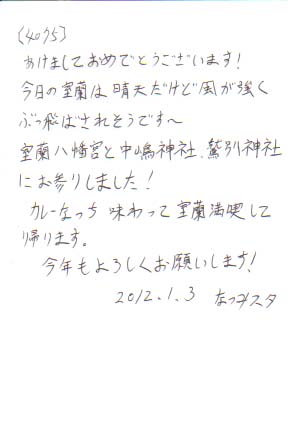 (4075)
あけましておめでとうございます!
今日の室蘭は晴天だけど風が強く
ぶっ飛ばされそうです～
室蘭八幡宮と中嶋神社、鷲別神社
にお参りしました!
カレーなっち 味わって室蘭満喫して
帰ります。
今年もよろしくお願いします!
2012.1.3 なつみスタ